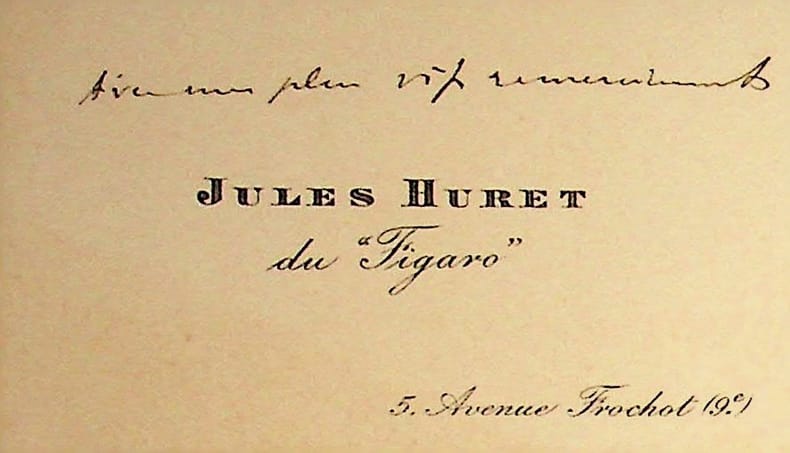 Avec mes plus vifs remerciements
JULES HURET
du "Figaro"
5. Avenue Frochot (9e)